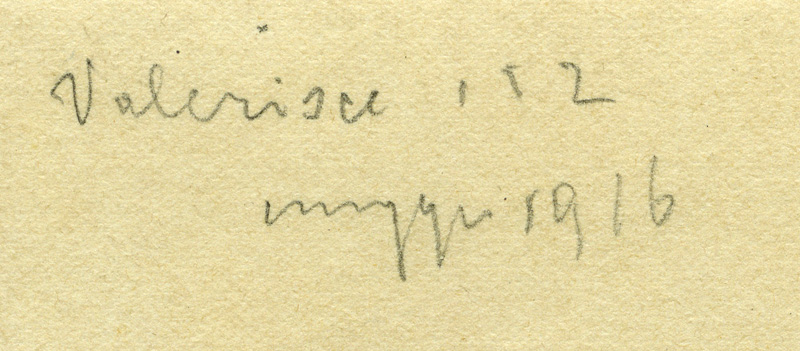 Valerisce il 2
maggio 1916